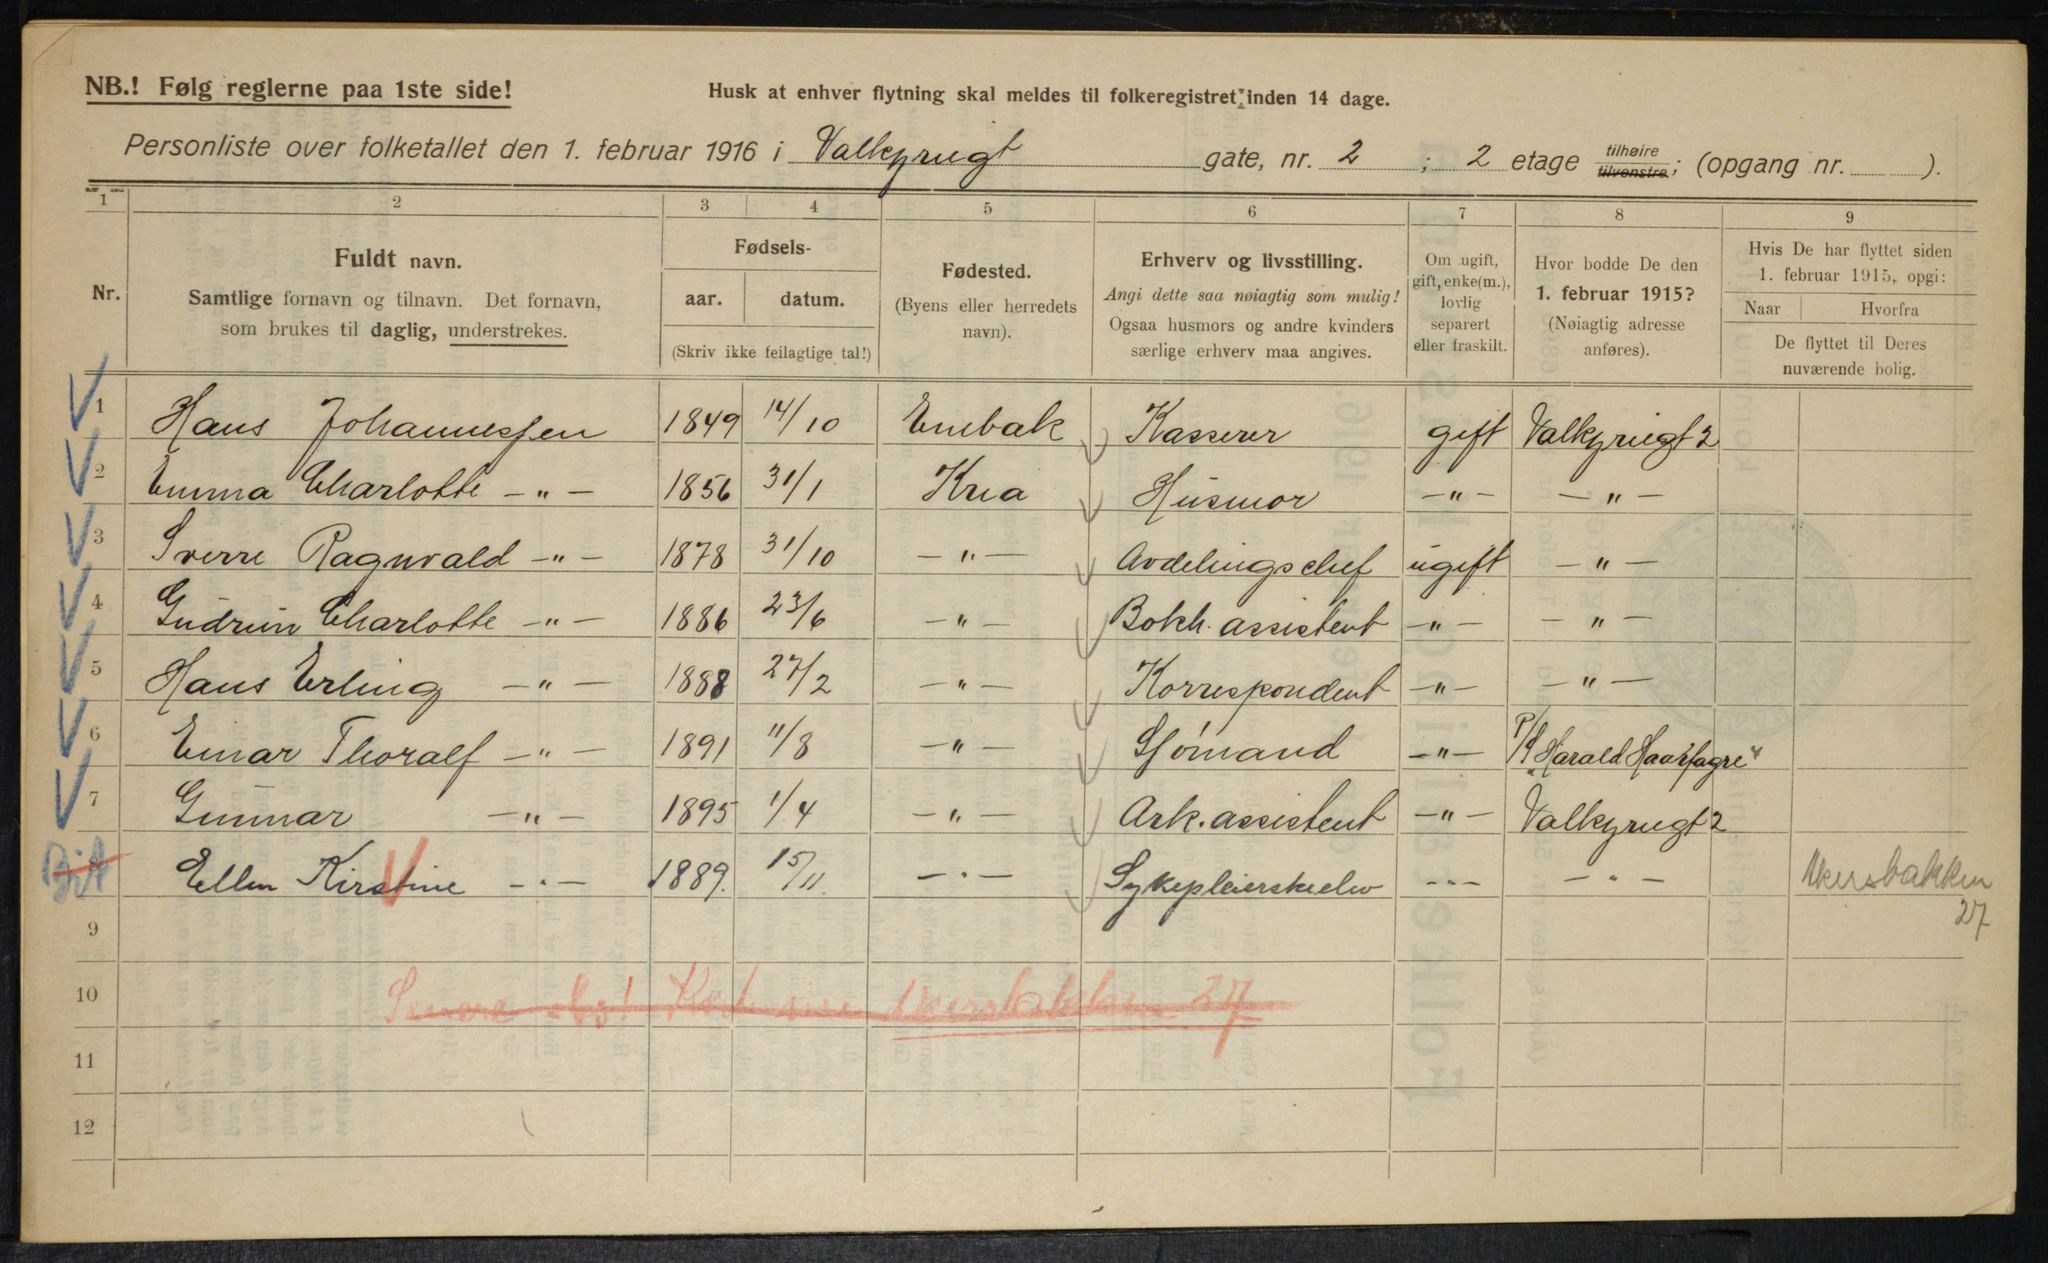 NB.! Følg reglerne paa 1ste side!
Husk at enhver flytning skal meldes til folkeregistret inden 14 dage.
Personliste over folketallet den 1. februar 1916 i Valkyriegt gate, nr. 2 ; 2 etage tilhøire tilvenstre; (opgang nr. ).
1 2 3 4 5 6 7 8 9
Nr.
Fuldt navn.
Samtlige fornavn og tilnavn. Det fornavn,
som brukes til daglig, understrekes.
Fødsels-
aar. datum.
(Skriv ikke feilagtige tal!)
Fødested.
(Byens eller herredets
navn).
Erhverv og livsstilling.
Angi dette saa nøiagtig som mulig!
Ogsaa husmors og andre kvinders
særlige erhverv maa angives.
Om ugift,
gift, enke(m.),
lovlig
separert
eller fraskilt.
Hvor bodde De den
1. februar 1915?
(Nøiagtig adresse
anføres).
Hvis De har flyttet siden
1. februar 1915, opgi:
Naar Hvorfra
De flyttet til Deres
nuværende bolig.
1 Hans Johannessen 1849 14/10 Enebak Kasserer gift Valkyriegt 2
2 Emma Charlotte -"- 1856 31/1 Kria Husmor -"- -"-
3 Sverre Ragnvald -"- 1878 31/10 -"- Avdelingschef ugift -"-
4 Gudrun Charlotte -"- 1886 23/6 -"- Bokh. assistent -"- -"-
5 Hans Erling -"- 1888 27/2 -"- Korrespondent -"- -"-
6 Einar Thoralf -"- 1891 11/8 -"- Sjømand -"- "Harald Haarfagre"
7 Gunnar -"- 1895 1/4 -"- Ark. assistent -"- Valkyriegt 2
8 Ellen Kirstine -"- 1889. 15/11 -"- Sykepleierskeelev -"- -"- Akersbakken
27
9
10 Akersbakken 27
11
12